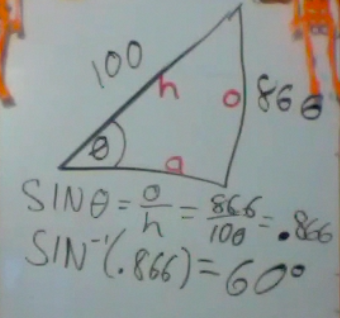 100
h
o 866
θ
a
SINθ = o/h = 866/100 = .866
SIN⁻¹(.866) = 60°